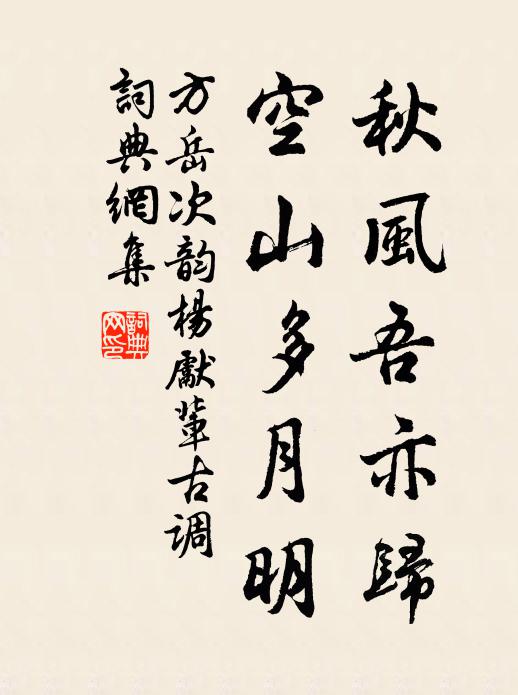 秋風吾亦歸
空山多月明
方岳次韵楊獻輩古调
詞典網集
詞典网印